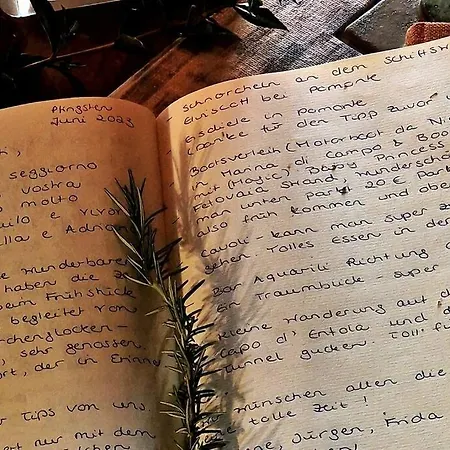 Pfingsten
Juni 2023
seggiorno
vostra
molto
e
e Adrian
wunderbare
haben die
beim Frühstück
begleitet von
chenglocken-
sehr genossen.
ort, der in Erinne
Tips von uns.
nur mit dem
Schnorcheln an dem Schiffs
Elviscott bei Pomonte
Eisdiele in Pomonte
(Danke für den Tipp zuvor
Bootsverleih (Motorboot da
in Marina di Campo & Boo
mit (Magic) Baby Princess
Felovaia Strand, wunderschö
man unten parkt, 20 € Park
also früh kommen und obe
Cavoli - kann man super z
gehen. Tolles Essen in der
Bar Aquarili Richtung
Ein Traumblick super
kleine Wanderung auf d
Capo d'Enfola und d
Tunnel gucken. Toll f
wünschen allen die
eine tolle Zeit!
Jürgen, Frida